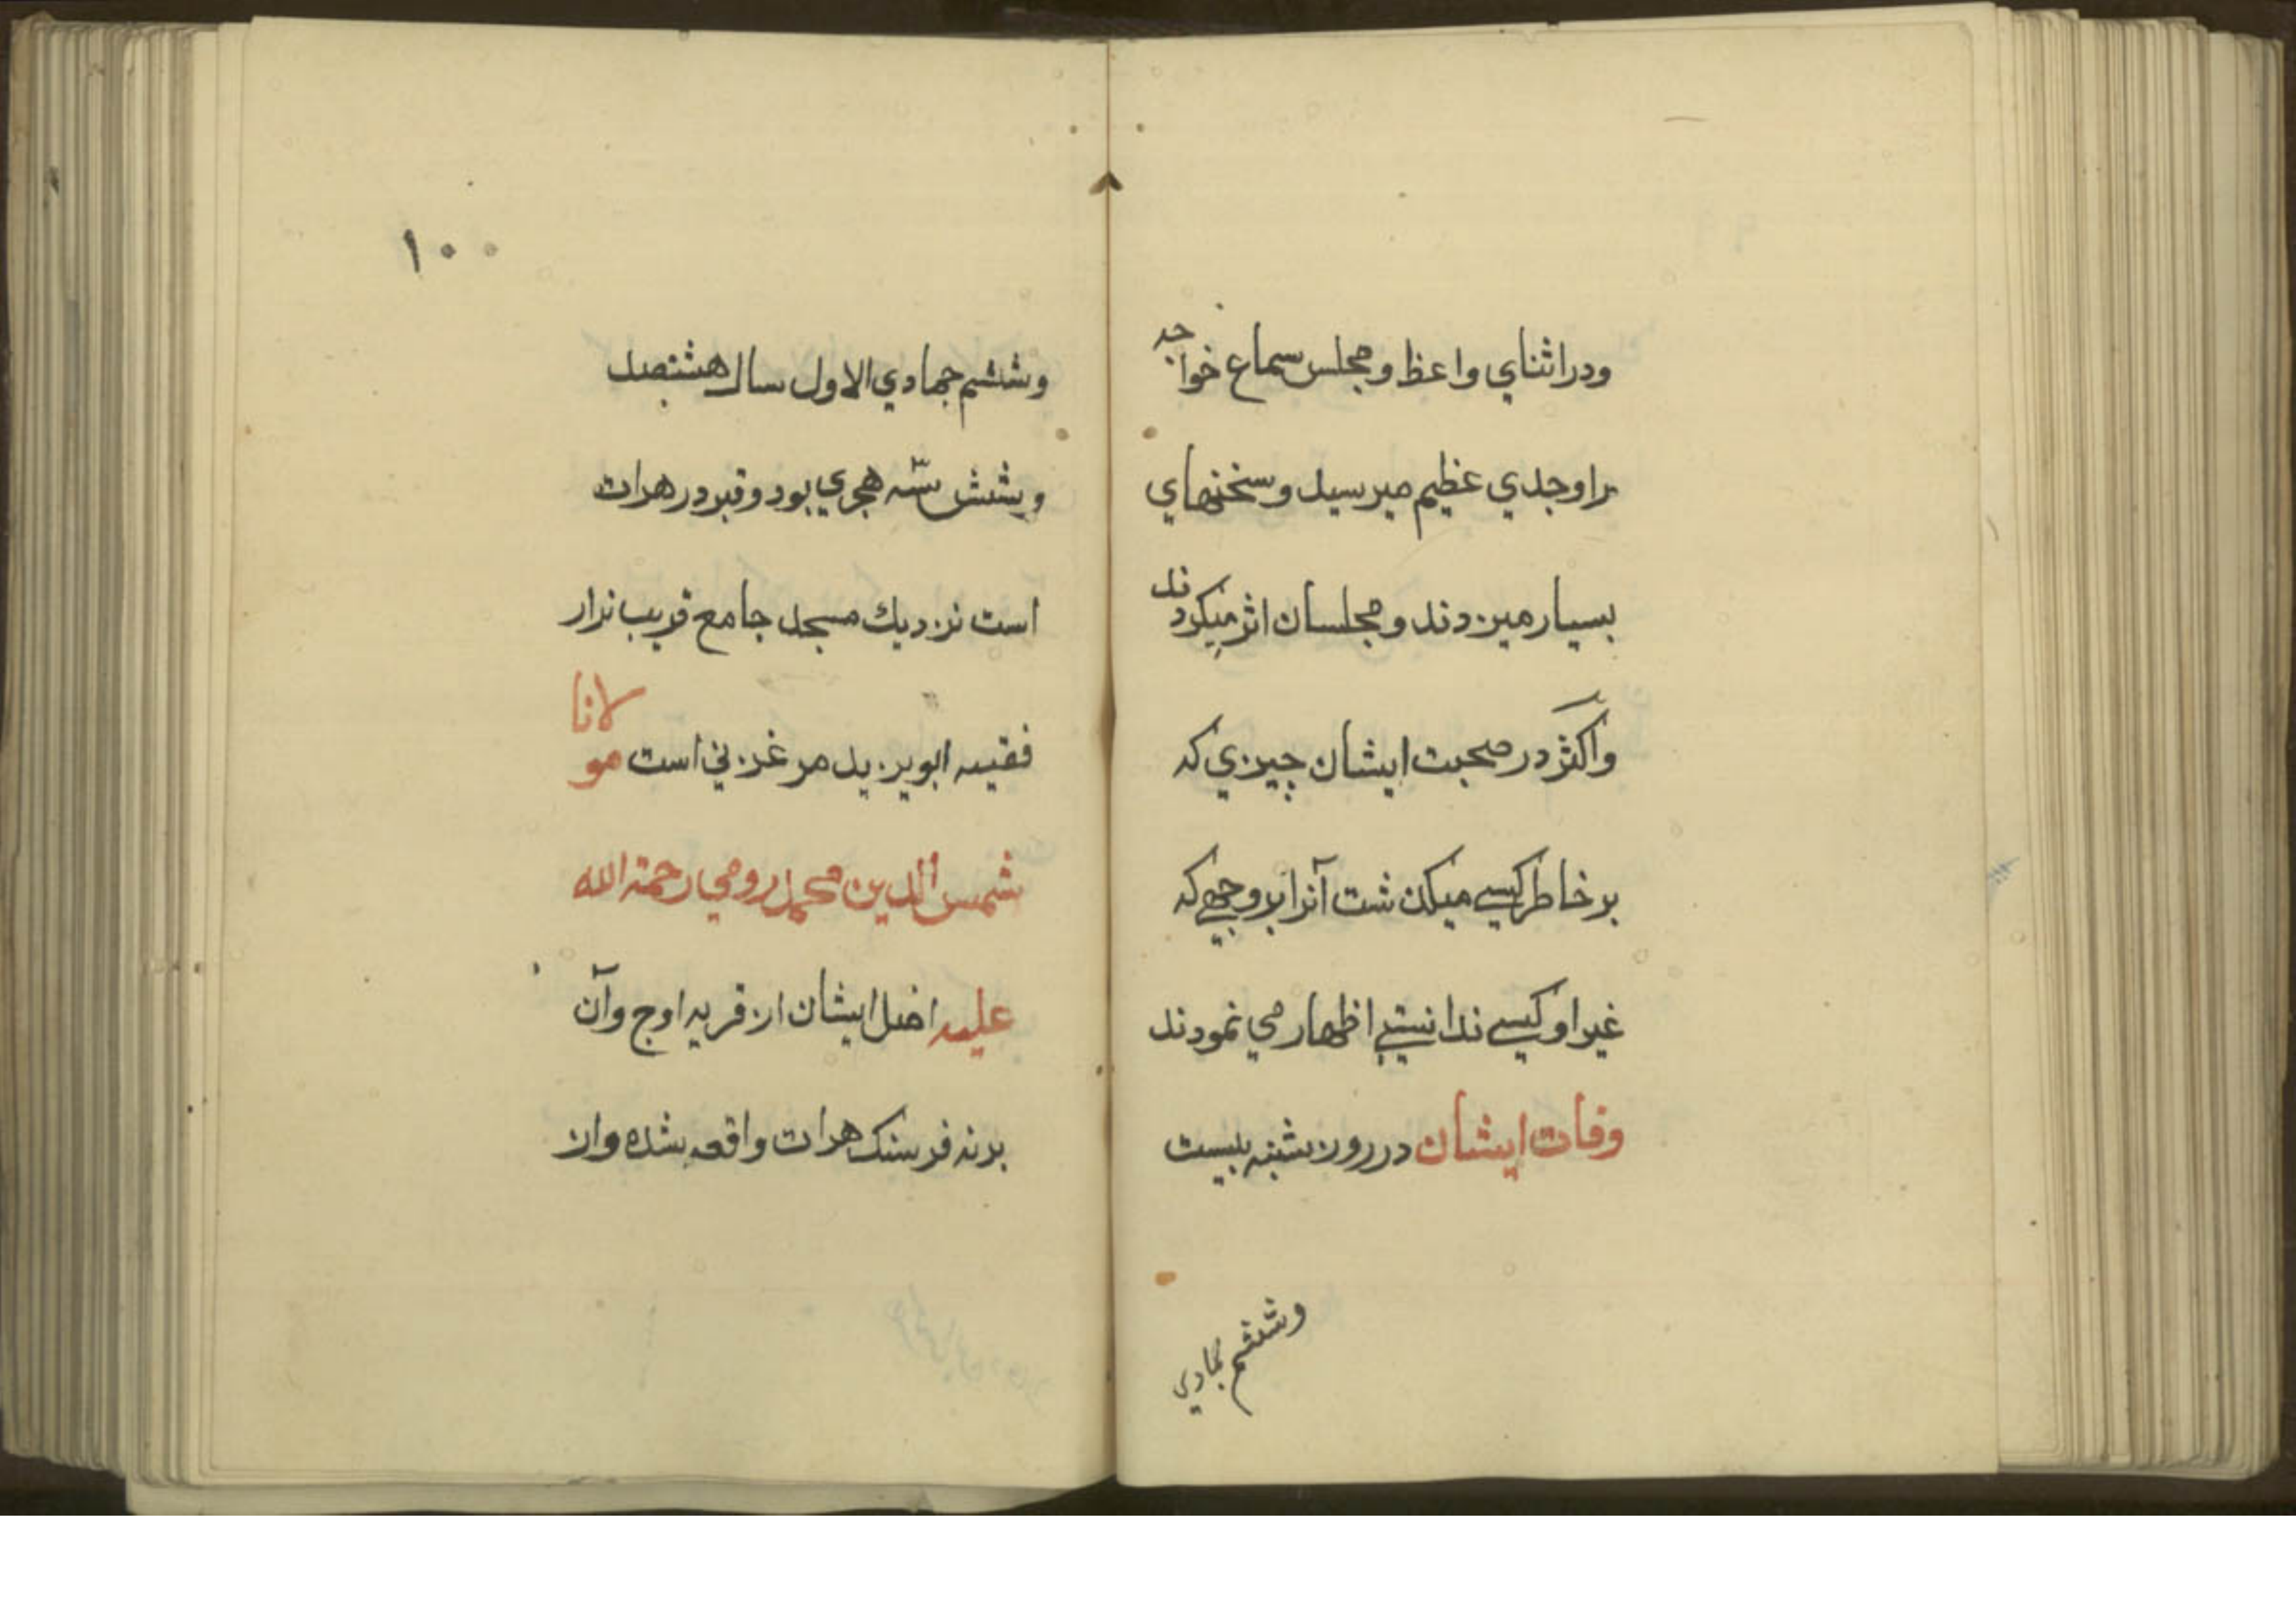 ودر اثناي واعظ ومجلس سماع خواجه
را وجدي عظيم ميرسيد وسخنهاي
بسيار ميزدند ومجلسان اثر ميكردند
واكثر در صحبت ايشان چيزي كه
بر خاطر كسي ميكذشت آنرا بر وجهي كه
غير او كسي ندانستي اظهار مي نمودند
وفات ايشان در روز شنبه بيست
وششم جمادي
١٠٠
وششم جمادي الاول سال هشتصد
وشش سنّه هجري بود وقبر در هرات
است نزديك مسجد جامع قريب نزار
فقيه ابو يزيد مرغزني است مولانا
شمس الدين محمد رومي رحمة الله
عليه اصل ايشان از قريه اوج وآن
بر نه فرسنك هرات واقعه شده واز